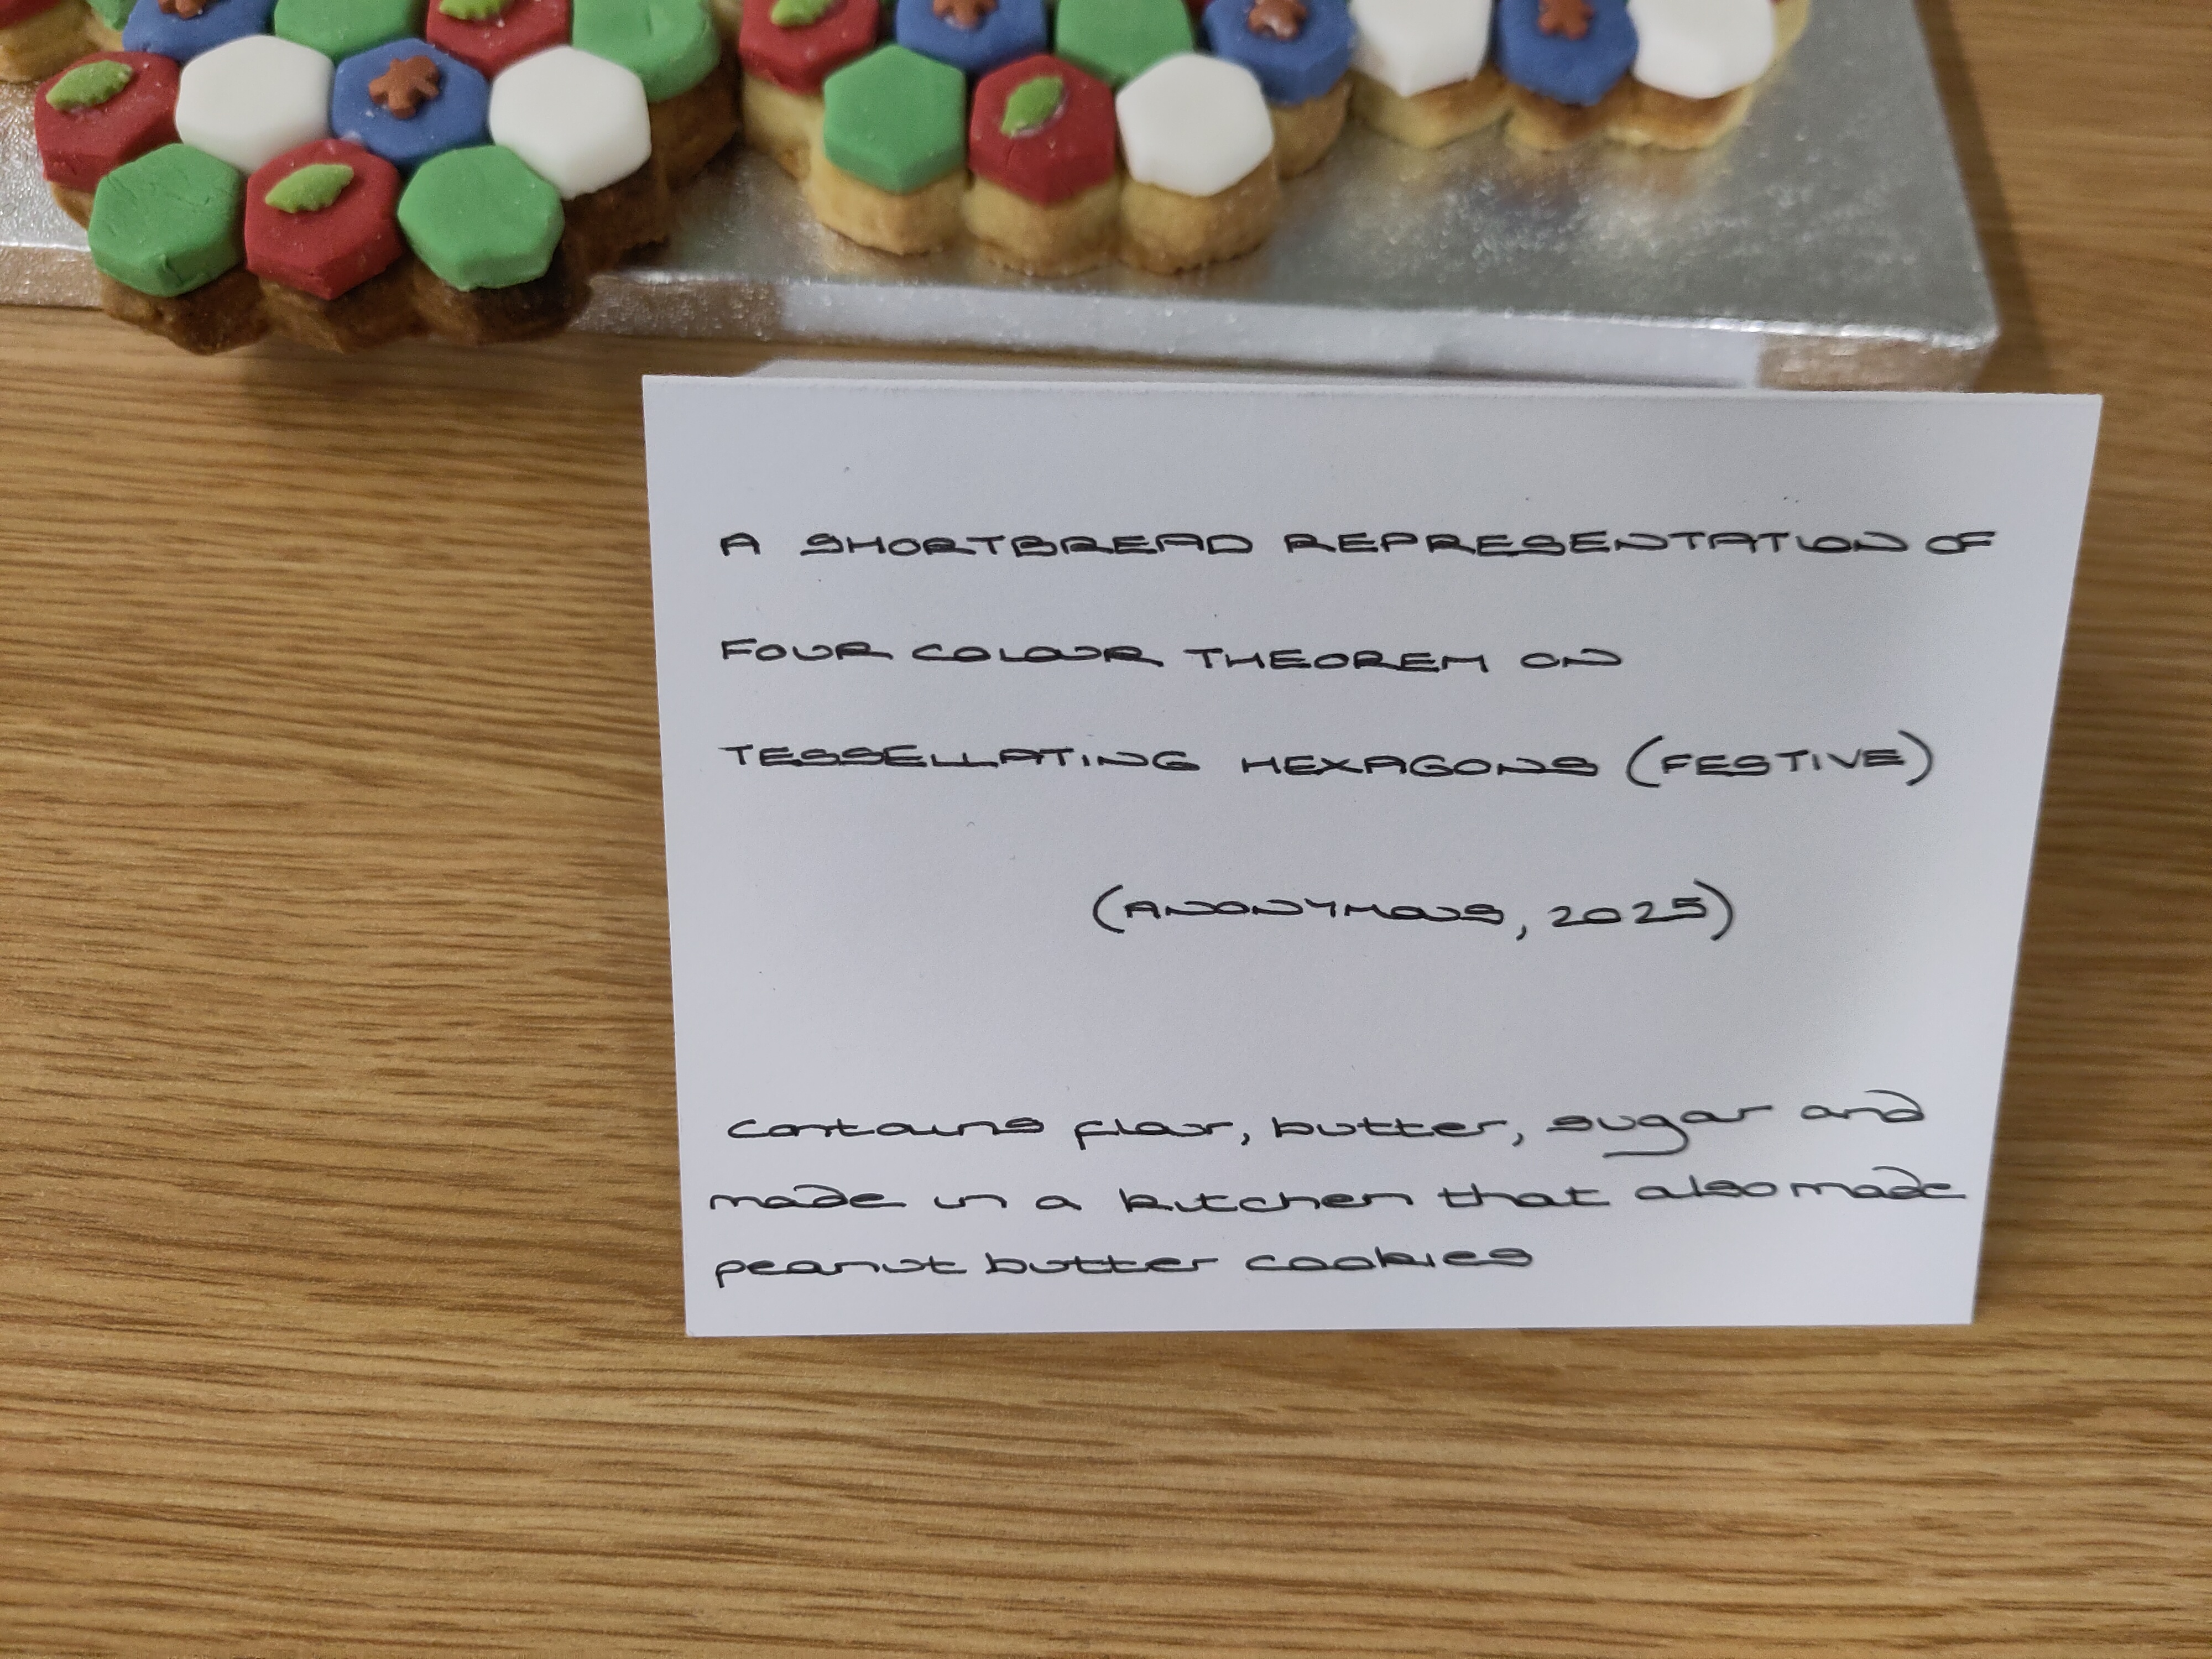 A SHORTBREAD REPRESENTATION OF
FOUR COLOUR THEOREM ON
TESSELLATING HEXAGONS (FESTIVE)
(ANONYMOUS, 2025)
contains flour, butter, sugar and
made in a kitchen that also made
peanut butter cookies